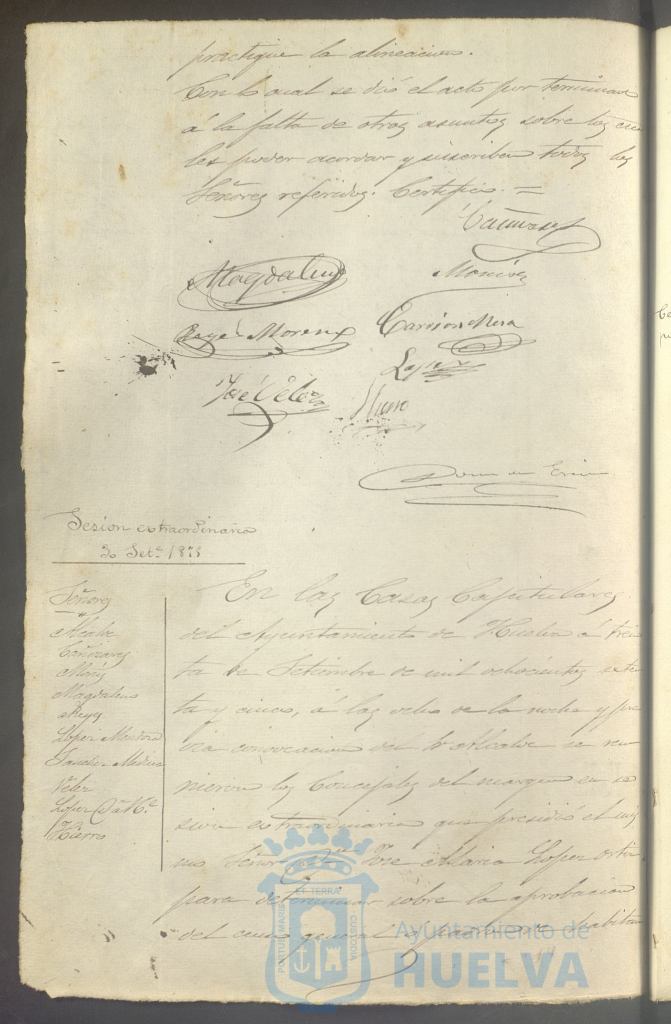 practique la alineacion.
Con lo cual se dió el acto por terminado
á la falta de otros asuntos sobre los cua
les poder acordar y suscriben todos los
Señores referidos. Certifico. =
Cañizares
Magdaleno
Moníz
Reyes Moreno
Carrion Mera
Lopez
José Vélez
Hierro
Sesion extraordinaria
30 Set.e 1875
Señores
Alcalde
Cañizares
Moníz
Magdaleno
Reyes
Lopez Montoro
Sanchez Medina
Velez
Lopez
Hierro
En las Casas Capitulares
del Ayuntamiento de Huelva á trein
ta de Setiembre de mil ochocientos seten
ta y cinco, á las ocho de la noche y pre
via convocacion del Sr Alcalde se reu
nieron los Concejales del margen en se
sion extraordinaria que presidió el mis
mo Señor José Maria Lopez
para determinar sobre la aprobacion
del censo general de habitan
PORTUS MARIS
ET TERRÆ
CUSTODIA
Ayuntamiento de
HUELVA